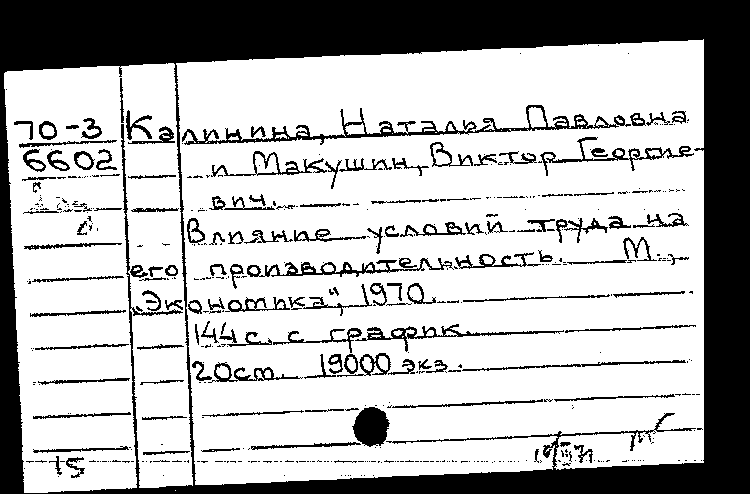 70-3 Калинина, Наталья Павловна
6602 и Макушин, Виктор Георгие-
вич.
Влияние условий труда на
его производительность. М.,
„Экономика", 1970.
144 с. с график.
20 см. 19000 экз.
15